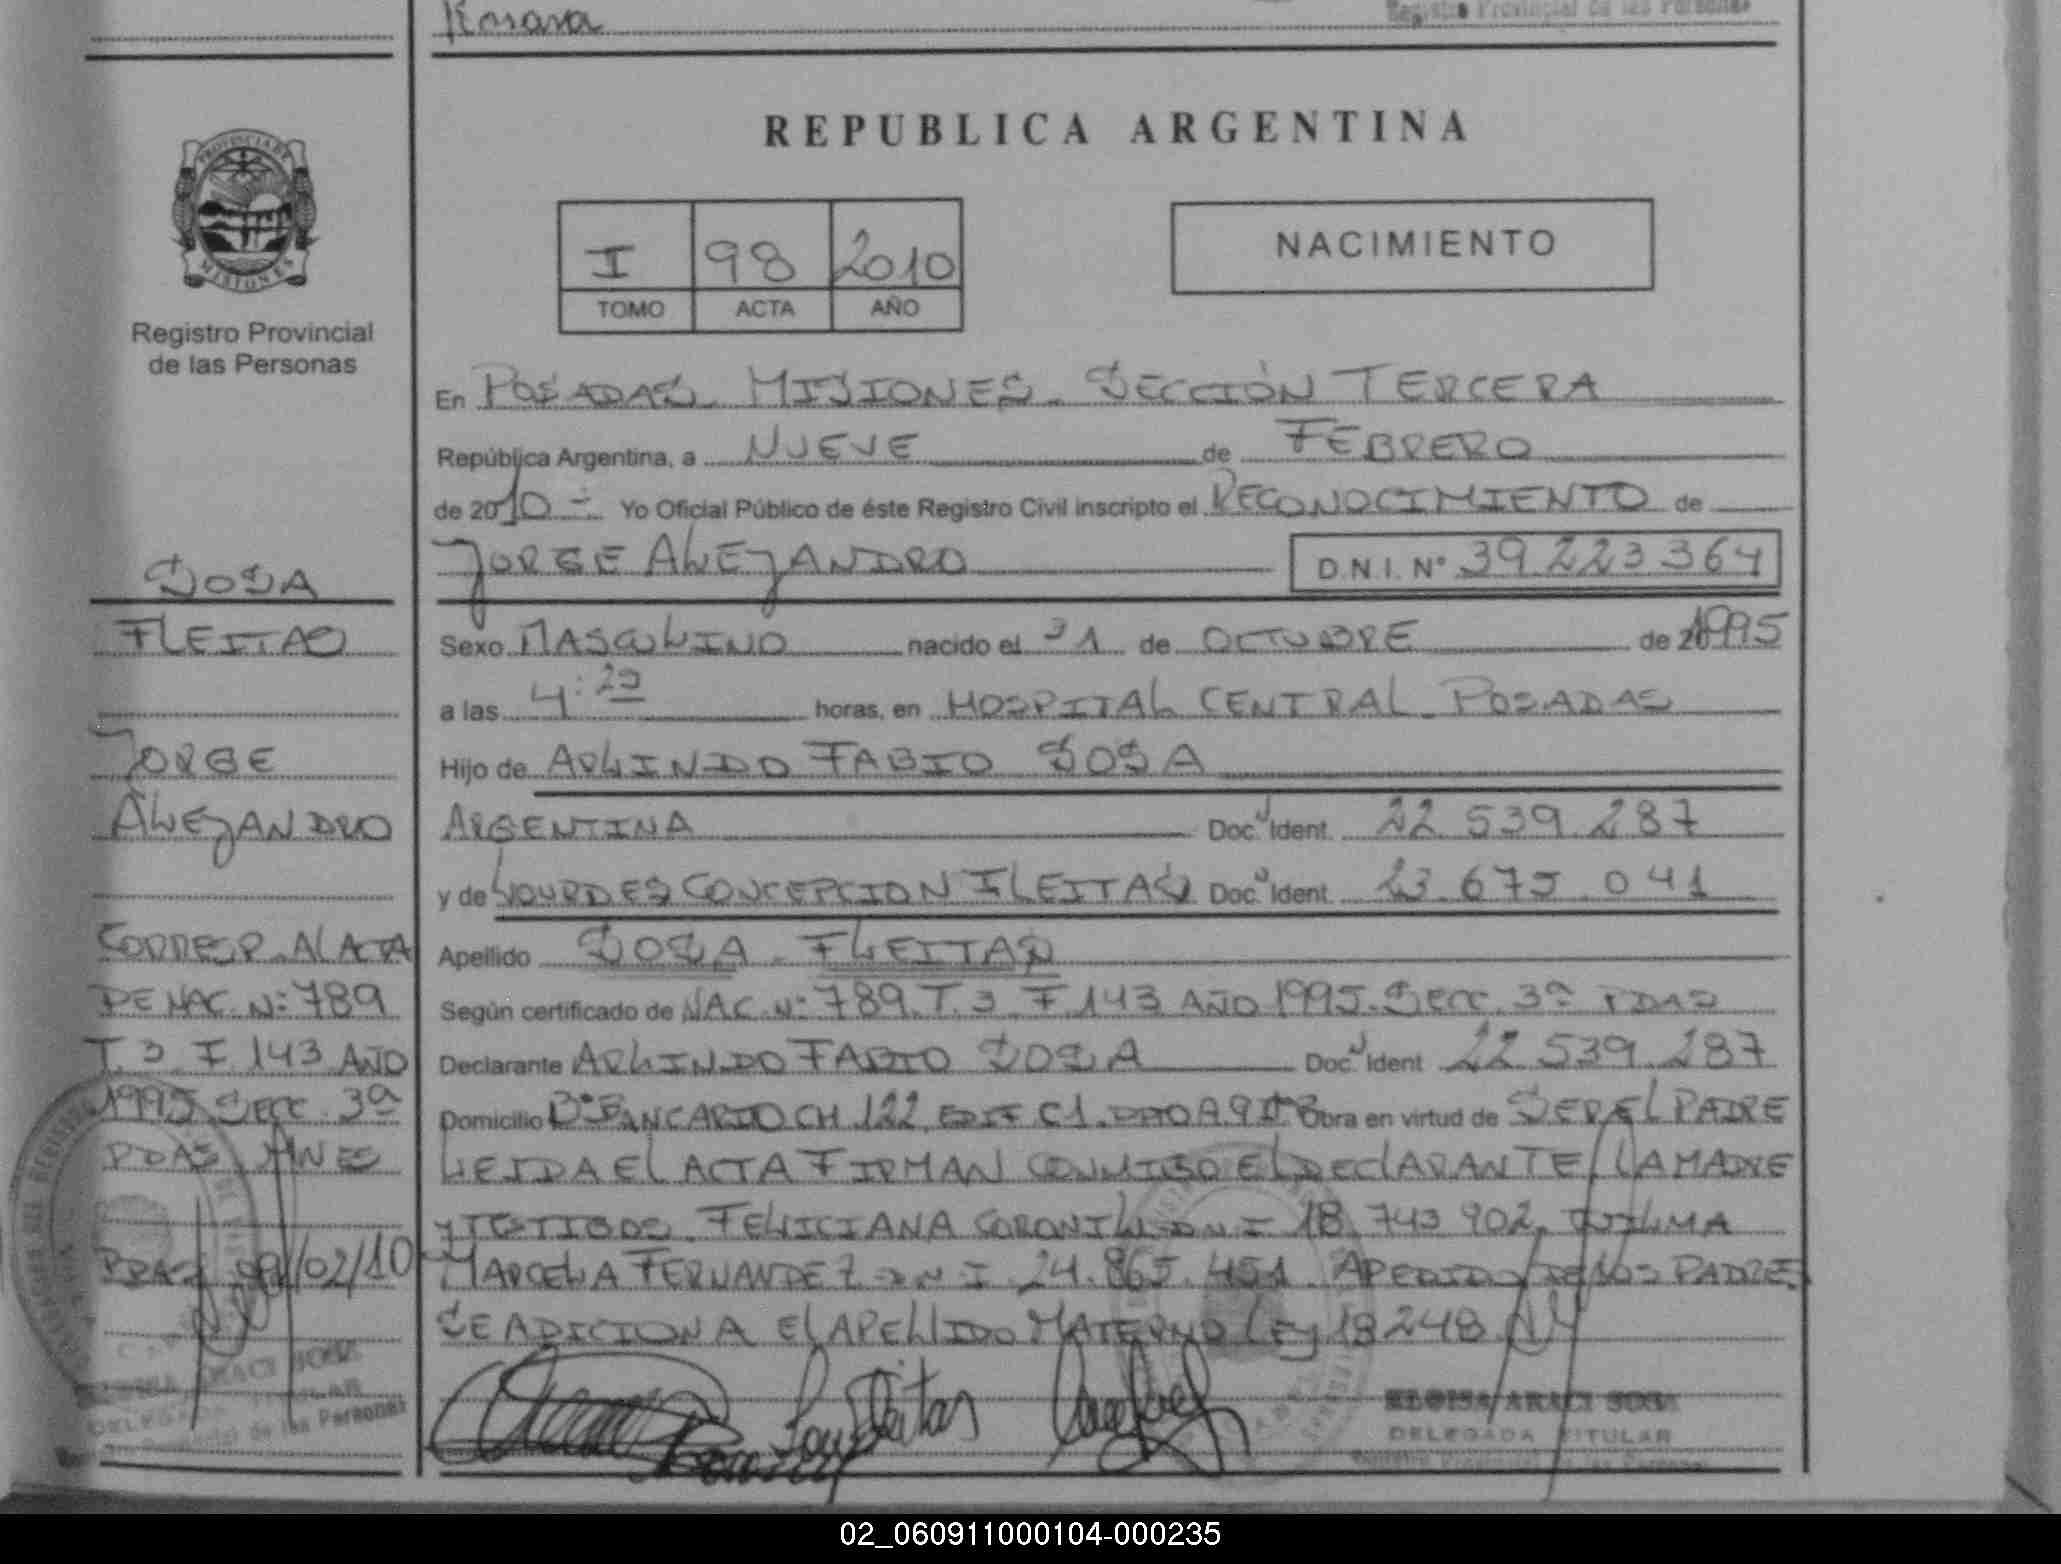 Rosana
Registro Provincial de las Personas
REPUBLICA ARGENTINA
PROVINCIA DE
MISIONES
Registro Provincial
de las Personas
I 98 2010
TOMO ACTA AÑO
NACIMIENTO
En POSADAS MISIONES - SECCIÓN TERCERA
República Argentina, a NUEVE de FEBRERO
de 2010 Yo Oficial Público de éste Registro Civil inscripto el RECONOCIMIENTO de
JORGE ALEJANDRO D.N.I. Nº 39.223.364
Sexo MASCULINO nacido el 31 de OCTUBRE de 20 1995
a las 4:20 horas, en HOSPITAL CENTRAL - POSADAS
Hijo de ARLINDO FABIO SOSA
ARGENTINA Doc. Ident. 22.539.287
y de LOURDES CONCEPCION FLEITAS Doc. Ident. 23.675.041
Apellido SOSA - FLEITAS
Según certificado de NAC. Nº 789. T. 3 F. 143 AÑO 1995. SECC. 3ª PDAS
Declarante ARLINDO FABIO SOSA Doc. Ident. 22.539.287
Domicilio Bº BANCARIO CH. 122 EDIF C1. DPTO A Obra en virtud de SER EL PADRE
LEIDA EL ACTA FIRMAN CONMIGO EL DECLARANTE, LA MADRE
y TESTIGOS. FELICIANA D.N.I 18.743.902,
MARCELA FERNANDEZ D.N.I 24.865.451. A PEDIDO DE LOS PADRES
SE ADICIONA EL APELLIDO MATERNO LEY 18248
SOSA
FLEITAS
JORGE
ALEJANDRO
CORRESP. AL ACTA
DE NAC. Nº 789
T. 3 F. 143 AÑO
1995 SECC. 3ª
PDAS MNES
PDAS 09/02/10
Lou Fleitas
ELOISA ARACI SOSA
DELEGADA TITULAR
Registro Provincial de las Personas
ELOISA ARACI SOSA
DELEGADA TITULAR
Registro Provincial de las Personas
02_060911000104-000235